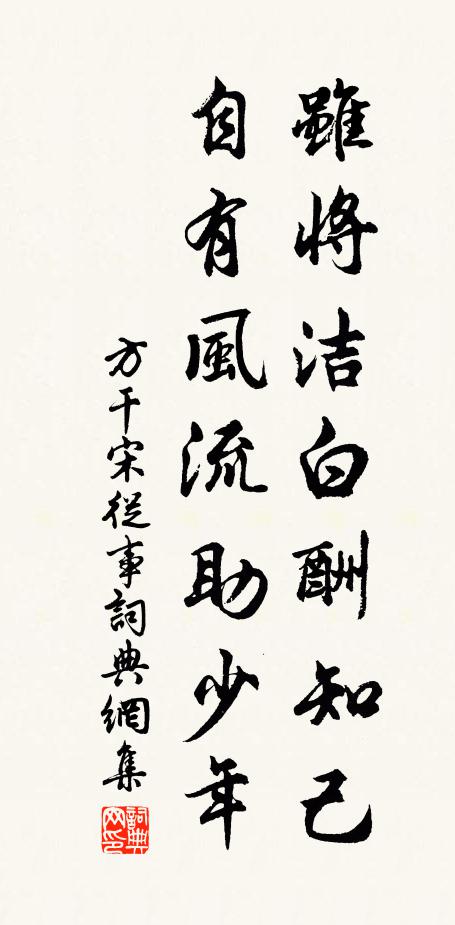 雖將洁白酬知己
自有風流助少年
方干宋從事詞典網集
詞典网印